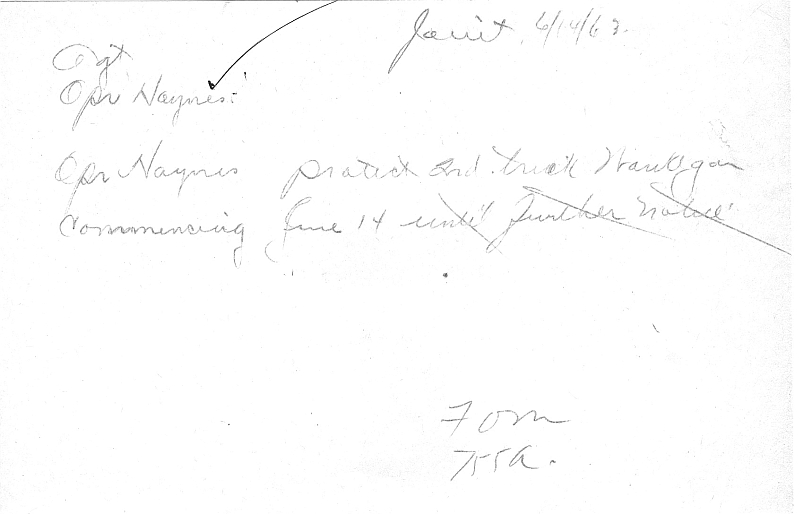 Joint, 6/14/63.
Agt
Opr Haynes:
Opr Haynes protect 2nd trick Waukegan
commencing June 14 until further notice
755A.